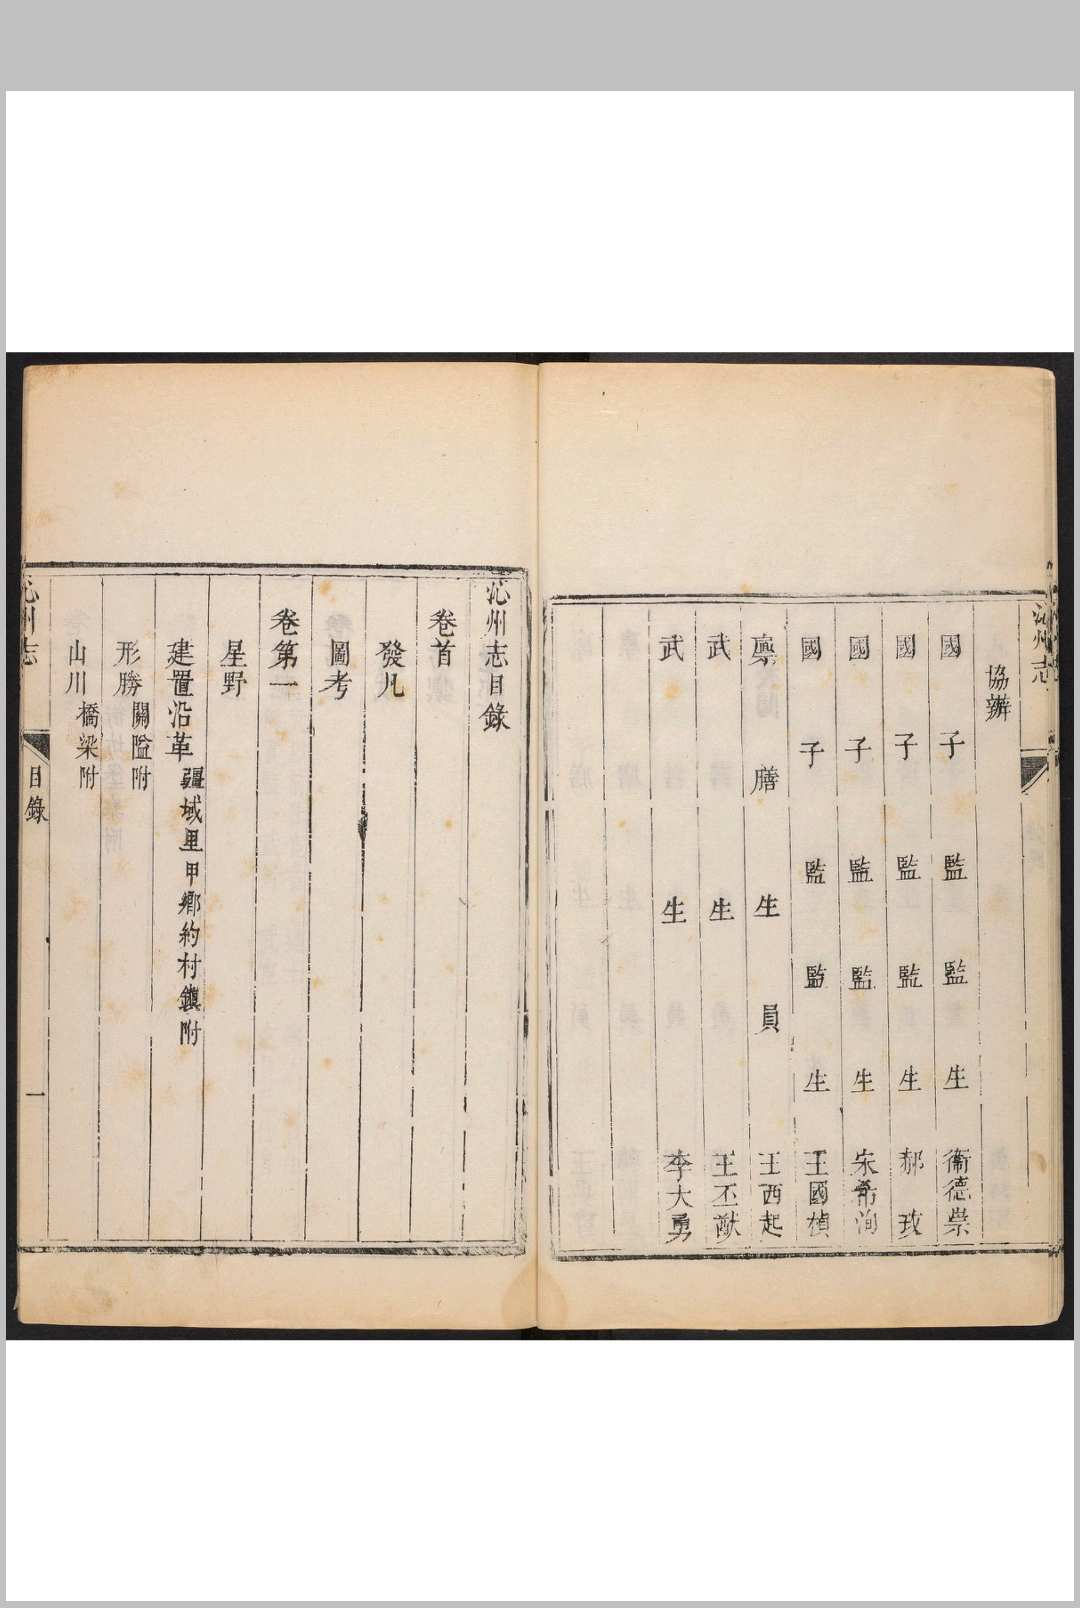 沁州志
協辦
國子監監生衞德崇
國子監監生郝玫
國子監監生宋希洵
國子監監生王國楨
廩膳生員王西起
武生王丕猷
武生李大勇
沁州志目錄
卷首
發凡
圖考
卷第一
星野
建置沿革 疆域里甲鄉約村鎮附
形勝 關隘附
山川 橋梁附
沁州志 目錄 一